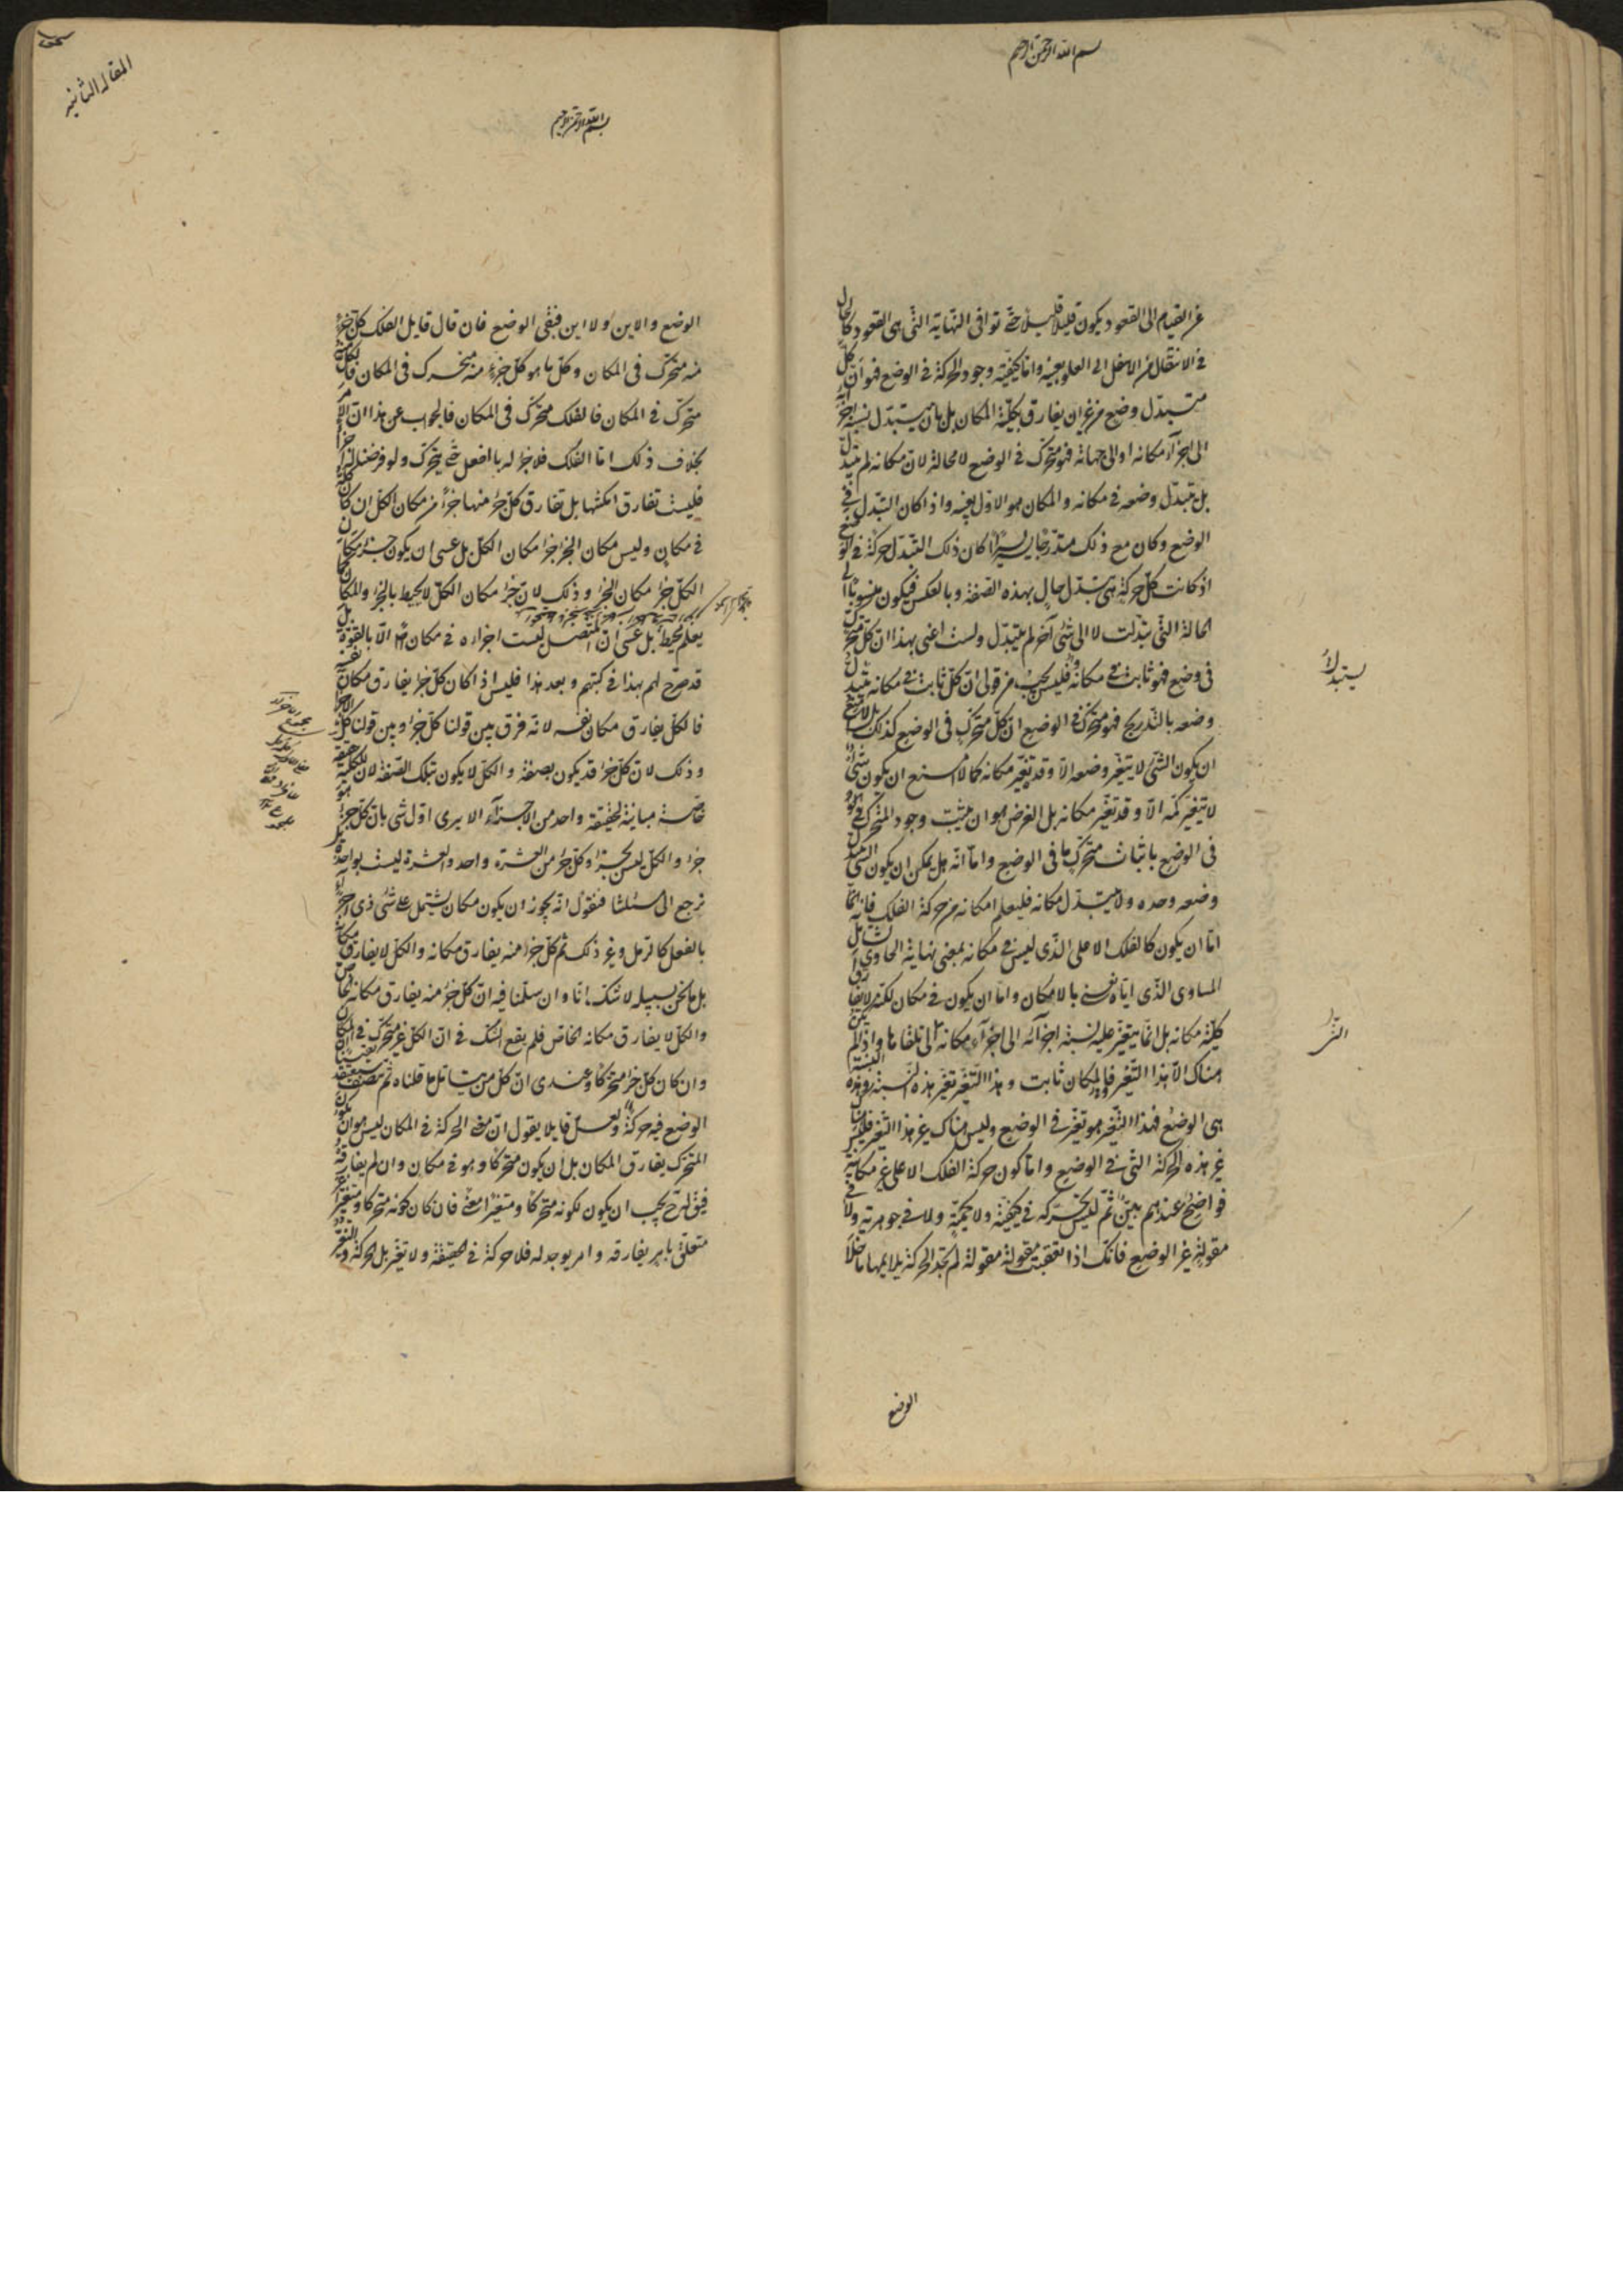 بسم الله الرحمن الرحيم
عن القيام الى القعود يكون قليلا قليلا حتى توافى النهاية التى هى القعود كالحال
فى الانتقال من الاسفل الى العلو بعينه واما كيفية وجود الحركة فى الوضع فهو ان كل
مستبدل وضع من غير ان يفارق بكليته المكان بل بان يستبدل نسبة اجزائه
الى اجزآء مكانه او الى جهاته فهو متحرك فى الوضع لا محالة لان مكانه لم يتبدل
بل تبدل وضعه فى مكانه والمكان هو الاول بعينه واذا كان التبدل فى
الوضع وكان مع ذلك متدرجا يسيرا يسيرا كان ذلك التبدل حركة فى الوضع
اذ كانت كل حركة هى تبدل حال بهذه الصفة وبالعكس فيكون منسوبا الى
الحالة التى تبدلت لا الى شئ آخر لم يتبدل ولست اعنى بهذا ان كل متحرك
فى وضع فهو ثابت فى مكانه فليس يجب من قولى ان كل ثابت فى مكانه يتبدل
وضعه بالتدريج فهو متحرك فى الوضع ان كل متحرك فى الوضع كذلك بل لا امنع
ان يكون الشئ لا يتغير وضعه الا وقد تغير مكانه كما لا امنع ان يكون شئ
لا يتغير كمه الا وقد تغير مكانه بل الغرض هو ان يثبت وجود المتحرك
فى الوضع باثبات متحرك ما فى الوضع واما انه هل يمكن ان يكون الشئ يتبدل
وضعه وحده ولا يتبدل مكانه فليعلم امكانه من حركة الفلك فانه
اما ان يكون كالفلك الاعلى الذى ليس فى مكانه بمعنى نهاية الحاوى الشامل
المساوى الذى اياه نعنى بالامكان واما ان يكون فى مكان لكنه لا يفارق
كلية مكانه بل انما يتغير عليه نسبة اجزآئه الى اجزآء مكانه التى تلقاها واذ لم يكن
هناك الا هذا التغير فالمكان ثابت وهذا التغير تغير هذه النسبة وهذه النسبة
هى الوضع فهذا التغير هو تغير فى الوضع وليس هناك غير هذا التغير فليس هناك
غير هذه الحركة التى فى الوضع واما كون حركة الفلك الاعلى غير مكانية
فواضح عندهم بين ثم ليس تحركه فى كيفية ولا كمية ولا فى جوهرية ولا فى
مقولة غير الوضع فانك اذا تعقبت مقولة مقولة لم تجد الحركة يلايمها ما خلا
الوضع
يستبدل
المقالة الثانية
بسم الله الرحمن الرحيم
الوضع والاين ولا اين فبقى الوضع فان قال قايل الفلك كل جزء
منه متحرك فى المكان وكل ما هو كل جزء منه متحرك فى المكان فالكل منه
متحرك فى المكان فالفلك متحرك فى المكان فالجواب عن هذا ان الامر
بخلاف ذلك اما الفلك فلا جزء له بالفعل حتى يتحرك ولو فرضنا له اجزآء
فليست تفارق امكنتها بل تفارق كل جزء منها جزءا من مكان الكل ان كان كله
فى مكان وليس مكان الجزء جزء مكان الكل بل عسى ان يكون جزء مكان
الكل جزء مكان الجزء وذلك لان جزء مكان الكل لا يحيط بالجزء والمكان كما
يعلم محيط بل عسى ان المتصل ليست اجزاءه فى مكان الا بالقوة بل
قد صرح لهم بهذا فى كتبهم وبعد هذا فليس اذا كان كل جزء يفارق مكان نفسه
فالكل يفارق مكان نفسه لانه فرق بين قولنا كل جزء وبين قولنا كل الاجزآء
وذلك لان كل جزء قد يكون بصفة والكل لا يكون بتلك الصفة لان للكلية حقيقة
خاصة مباينة لحقيقة واحد من الاجزآء الا يرى اول شئ بان كل جزء هو
جزء والكل ليس بجزء وكل جزء من العشرة واحد والعشرة ليست بواحدة بل
نرجع الى مسئلتنا فنقول انه يجوز ان يكون مكان يشتمل على شئ ذى اجزآء
بالفعل كالرمل وغير ذلك ثم كل جزء منه يفارق مكانه والكل لا يفارق مكانه
بل ما نحن بسبيله لا شك انا وان سلمنا فيه ان كل جزء منه يفارق مكانه الخاص
والكل لا يفارق مكانه الخاص فلم يقع الشك فى ان الكل غير متحرك فى المكان
وان كان كل جزء متحركا وعندى ان كل من يتامل ما قلناه ثم ينصف سيعتقد يقينا ان
الوضع فيه حركة ولعل قايلا يقول ان معنى الحركة فى المكان ليس هو ان يكون
المتحرك يفارق المكان بل ان يكون متحركا وهو فى مكان وان لم يفارقه
فيقال له يجب ان يكون لكونه متحركا ومتغيرا معنى فان كان كونه متحركا ومتغيرا غير
متعلق بامر يفارقه وامر يوجد له فلا حركة فى الحقيقة ولا تغير بل الحركة والتغير